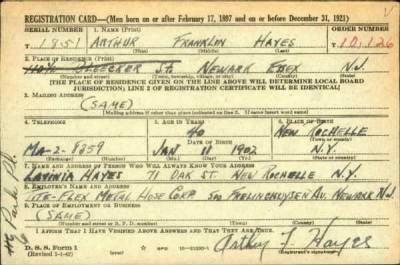 REGISTRATION CARD—(Men born on or after February 17, 1897 and on or before December 31, 1921)
SERIAL NUMBER 1. NAME (Print) ORDER NUMBER
T 1851 ARTHUR FRANKLIN HAYES 10,126
(First) (Middle) (Last)
2. PLACE OF RESIDENCE (Print)
BLEECKER ST. NEWARK ESSEX N.J.
(Number and street) (Town, township, village, or city) (County) (State)
[THE PLACE OF RESIDENCE GIVEN ON THE LINE ABOVE WILL DETERMINE LOCAL BOARD
JURISDICTION; LINE 2 OF REGISTRATION CERTIFICATE WILL BE IDENTICAL]
3. MAILING ADDRESS
(SAME)
[Mailing address if other than place indicated on line 2. If same insert word same]
4. TELEPHONE 5. AGE IN YEARS 6. PLACE OF BIRTH
40 NEW ROCHELLE
MA-2-8859 DATE OF BIRTH (Town or county)
JAN 11 1902 N.Y.
(Exchange) (Number) (Mo.) (Day) (Yr.) (State or country)
7. NAME AND ADDRESS OF PERSON WHO WILL ALWAYS KNOW YOUR ADDRESS
LAVINIA HAYES 71 OAK ST. NEW ROCHELLE N.Y.
8. EMPLOYER'S NAME AND ADDRESS
TITE-FLEX METAL HOSE CORP 500 FRELINGHUYSEN AV. NEWARK N.J.
9. PLACE OF EMPLOYMENT OR BUSINESS
(SAME)
(Number and street or R. F. D. number) (Town) (County) (State)
I AFFIRM THAT I HAVE VERIFIED ABOVE ANSWERS AND THAT THEY ARE TRUE.
D. S. S. Form 1
(Revised 1-1-42) (over) Arthur F. Hayes
Park Pl.